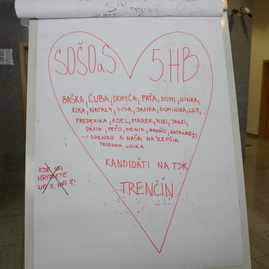 SOŠOaS 5.HB
BAŠKA, ĽUBA, DOMČA, PAŤA, DOMI, NINKA,
KIKA, NATALY, SISA, JANKA, DOMINIKA,
FREDERIKA, ADEL, MAREK, RIKI, JANO,
PEŤO, DENIS, BRAŇO,
ZDENKO A NAŠA NAJLEPŠIA
TRIEDNA
KANDIDÁTI NA TSK
TRENČÍN